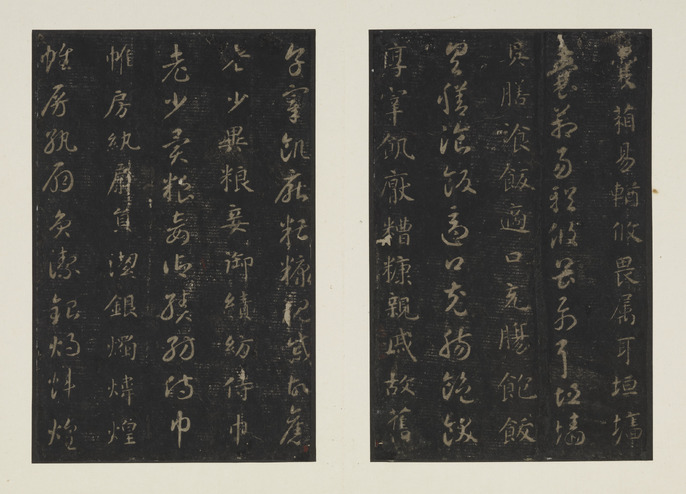 囊箱易輶攸畏属耳垣墻
囊箱易輶攸畏属耳垣墻
具膳飡飯適口充腸飽飫
具膳飡飯適口充腸飽飫
享宰飢厭糟糠親戚故舊
享宰飢厭糟糠親戚故舊
老少異粮妾御績紡侍巾
老少異粮妾御績紡侍巾
帷房紈扇員潔銀燭煒煌
帷房紈扇員潔銀燭煒煌